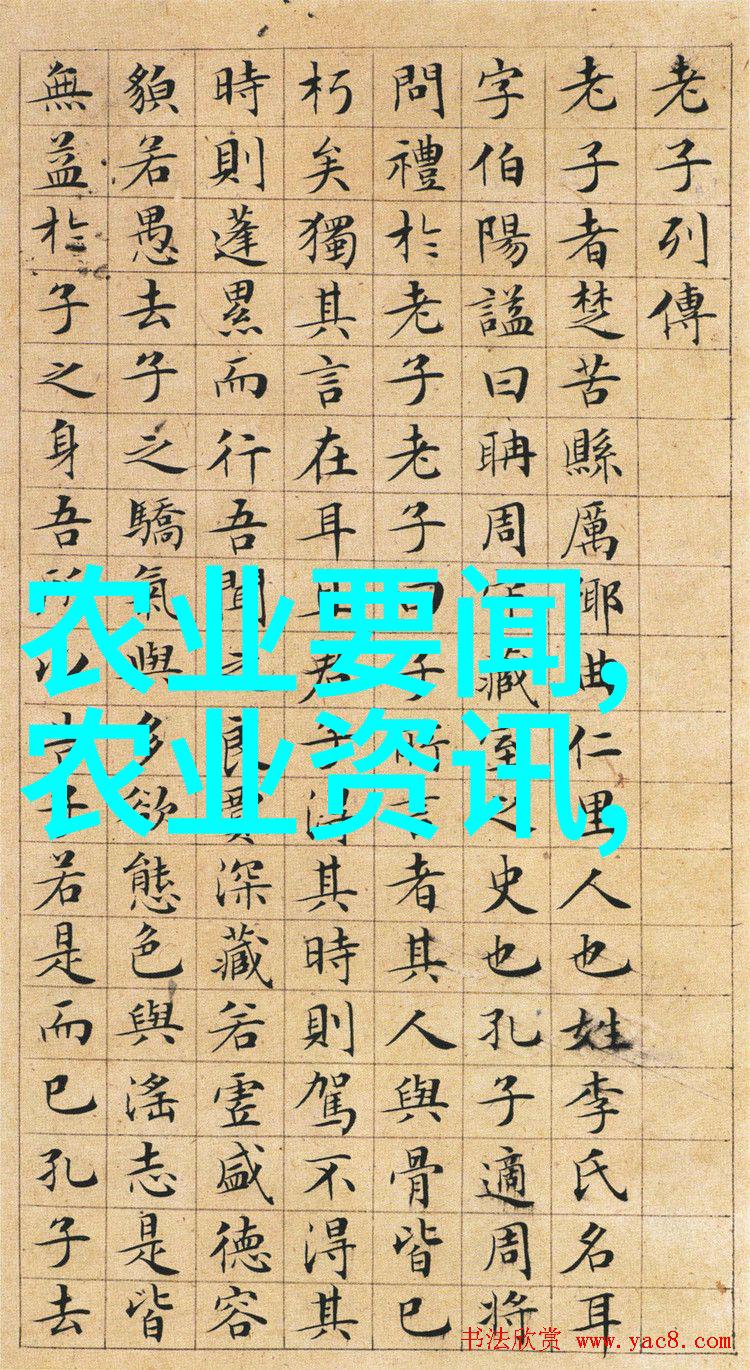 老子列傳
老子者楚苦縣厲鄉曲仁里人也姓李氏名耳
字伯陽謚曰聃周守藏室之史也孔子適周將
問禮於老子老子曰子所言者其人與骨皆已
朽矣獨其言在耳且君子得其時則駕不得其
時則蓬累而行吾聞之良賈深藏若虛盛德容
貌若愚去子之驕氣與多欲態色與淫志是皆
無益於子之身吾所以告子若是而已孔子去
农业要闻,
农业资讯,
书法欣赏 www.yac8.com